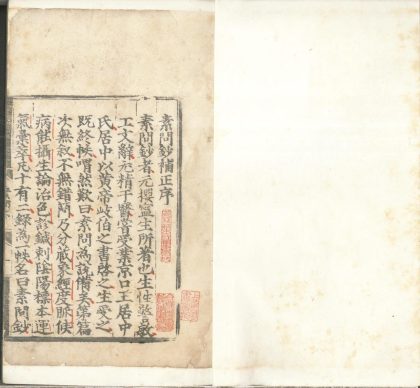 素問鈔補正序
素問鈔者元攖寧生所著也生性聡敏
工文辭尤精于醫嘗受業京口王居中
氏居中以黄帝岐伯之書啓之生受之
既終帙喟然歎曰素問為說備矣第篇
次無敘不無錯簡乃分藏象經度脉候
病能攝生論治色診鍼刺陰陽標本運
氣彙萃凡十有二録為一帙名曰素問鈔